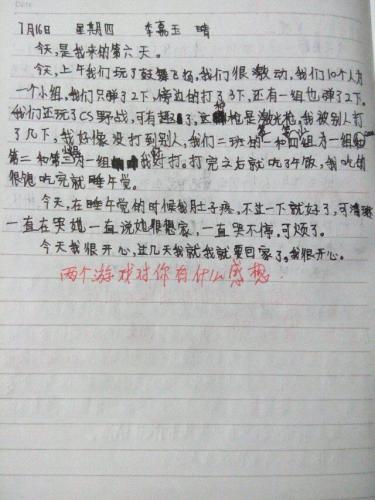 7月16日 星期四 李嘉玉 晴
今天,是我来的第六天。
今天,上午我们玩了鼓舞飞扬,我们很激动,我们10个人为
一个小组,我们只弹了2下,旁边的打了3下,还有一组也弹了2下。
我们还玩了CS野战,可有趣了,这枪是激光枪。我被别人打
了几下,我好像没打到别人,我们二班的第一和第四组为一组
第二和第三为一组 对打。打完之后就吃了午饭,我吃的
很饱吃完就睡午觉。
今天,在睡午觉的时候我肚子疼,不过一下就好了,可
一直在哭她一直说她很想家,一直哭不停,可烦了。
今天我很开心,过几天我就我就要回家了。我很开心。
两个游戏对你有什么感想